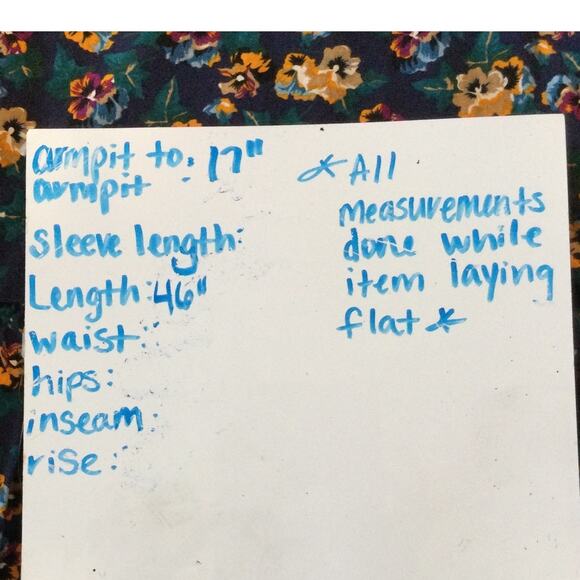 armpit to: 17"
armpit
sleeve length:
Length: 46"
waist:
hips:
inseam:
rise:
*All
measurements
done while
item laying
flat*